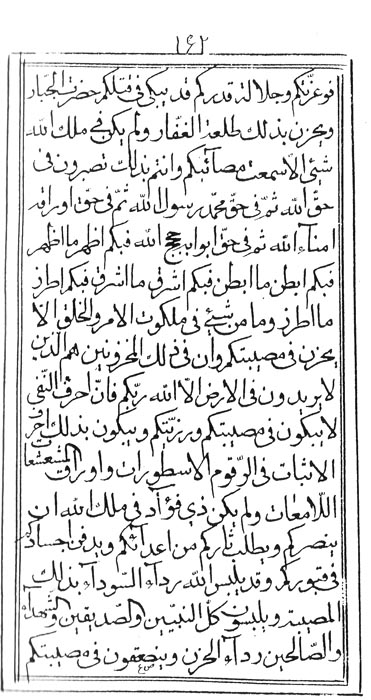 ١٦٢
فوعزتكم وجلالة قدركم قد يبكى فى قتلكم حضرت الجبار
ويحزن بذلك طلعة الغفار ولم يكن فى ملك الله
شئى الا سمعت مصائبكم وانتم بذلك تصبرون فى
حق الله ثم فى حق محمد رسول الله ثم فى حق اوراقه
امناء الله ثم فى حق ابواب حجج الله فبكم اظهر ما اظهر
فبكم ابطن ما ابطن فبكم اشرق ما اشرق فبكم اطرز
ما اطرز وما من شئى فى ملكوت الامر والخلق الا
يحزن فى مصيبتكم وان فى ذلك المحزونين هم الذين
لا يريدون فى الارض الا الله ربكم فان احرف النفى
لا يبكون فى مصيبتكم ورزيتكم ويبكون بذلك احرف
الاثبات فى الرقوم الاسطورات واوراق المتشعشعات
اللامعات ولم يكن ذي فؤاد فى ملك الله ان
ينصركم ويطلب ثاركم من اعدائكم ويدفن اجسادكم
فى قبوركم وقد يلبس الله رداء السوداء بذلك
المصيبة ويلبسون كل النبيين والصديقين والشهداء
والصالحين رداء الحزن وينصعقون فى مصيبتكم